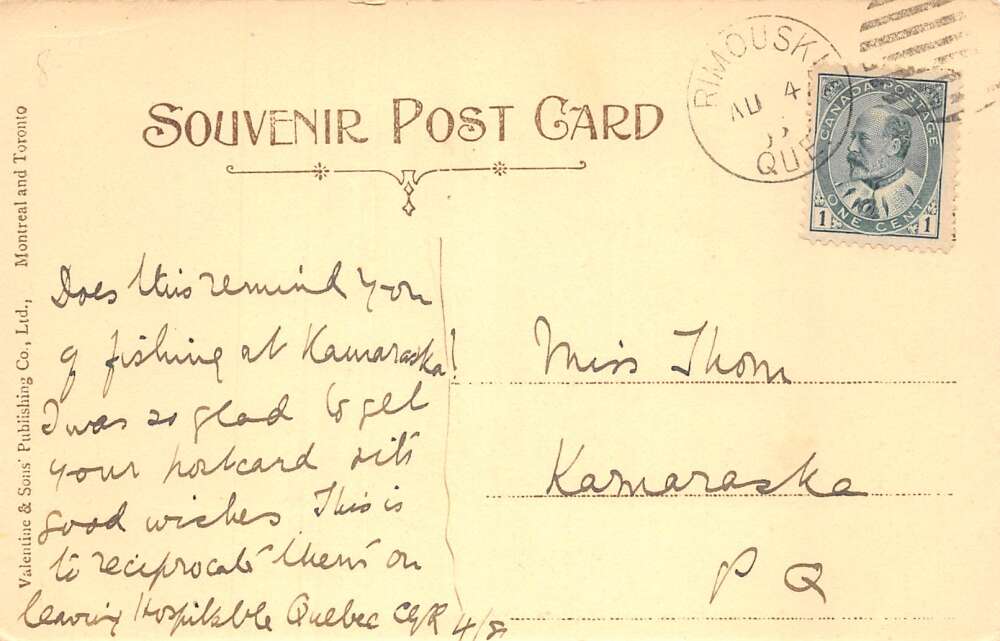 SOUVENIR POST CARD
RIMOUSKI
AU 4
QUE
CANADA POSTAGE
1 ONE CENT 1
Valentine & Sons' Publishing Co., Ltd., Montreal and Toronto
Does this remind you
of fishing at Kamaraska!
I was so glad to get
your postcard with
good wishes This is
to reciprocate them on
leaving Hospitable Quebec
4/8
Miss Thom
Kamaraska
P Q